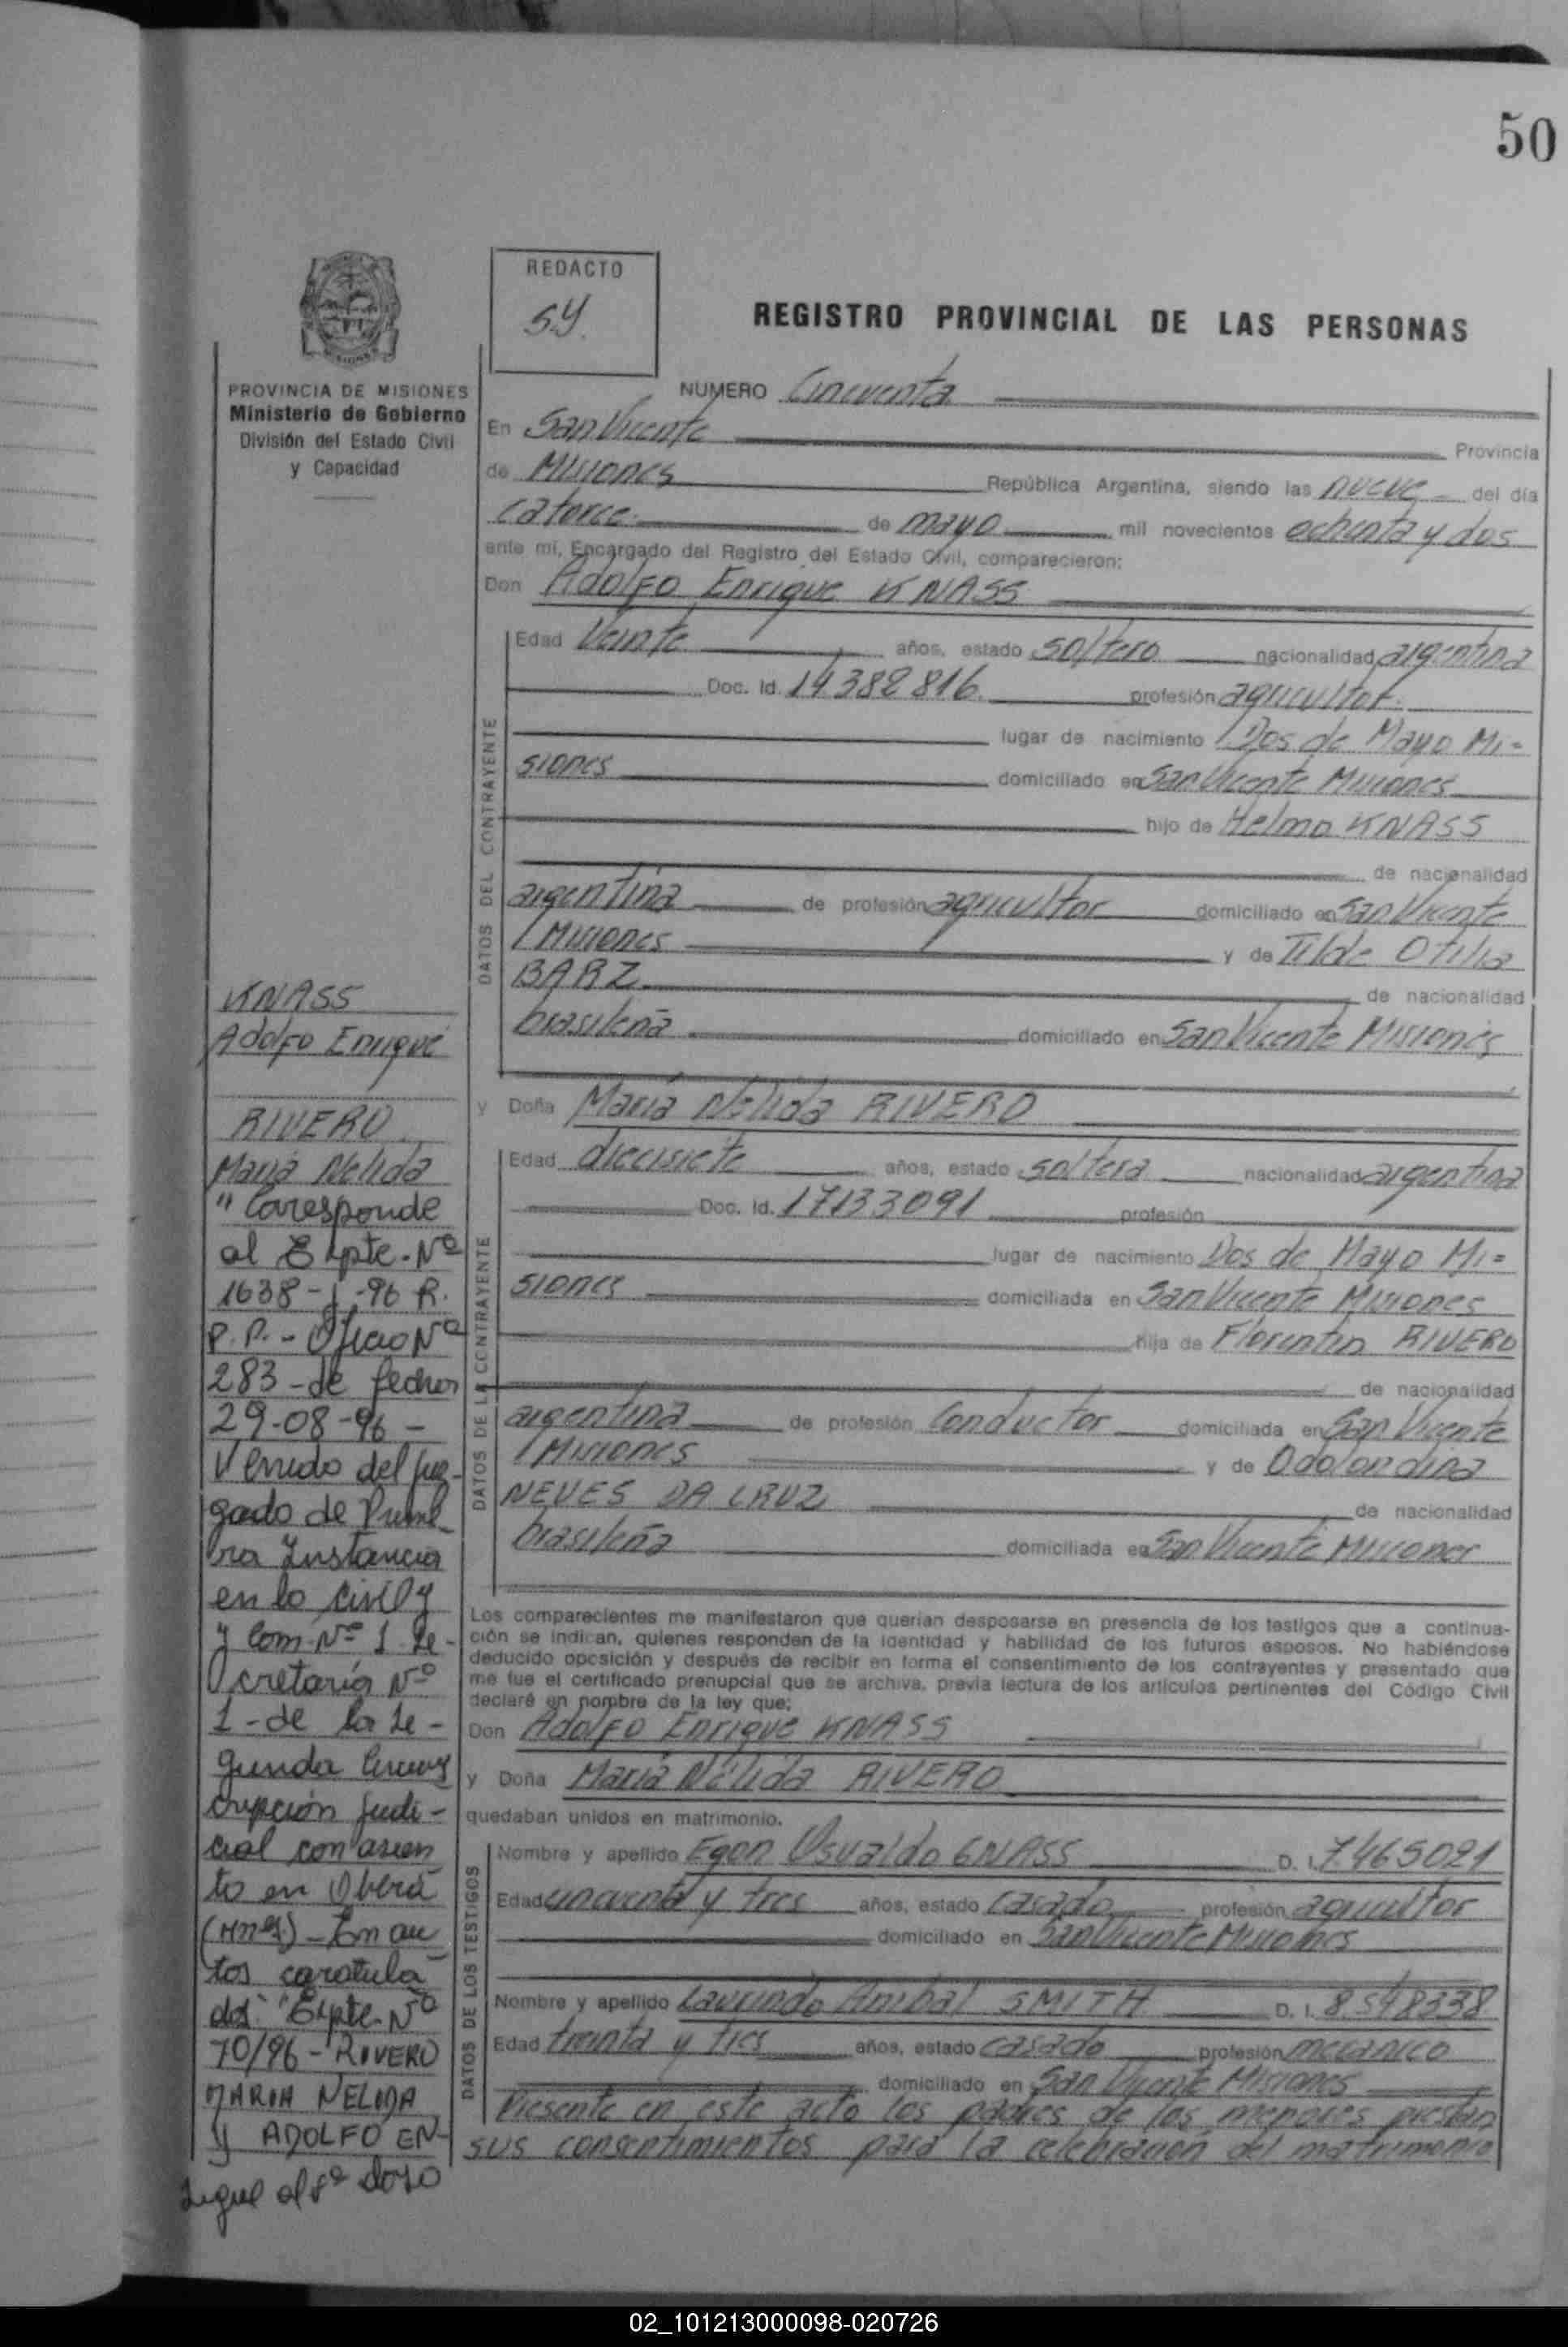 50
REDACTO
S.Y.
REGISTRO PROVINCIAL DE LAS PERSONAS
PROVINCIA DE MISIONES
Ministerio de Gobierno
División del Estado Civil
y Capacidad
NUMERO Cincuenta
En San Vicente Provincia
de Misiones República Argentina, siendo las nueve del día
catorce de mayo mil novecientos ochenta y dos
ante mí, Encargado del Registro del Estado Civil, comparecieron:
Don Adolfo Enrique KNASS
DATOS DEL CONTRAYENTE
Edad Veinte años, estado soltero nacionalidad argentina
Doc. Id. 14382816. profesión agricultor.
lugar de nacimiento Dos de Mayo Mi=
siones domiciliado en San Vicente Misiones
hijo de Helmo KNASS
de nacionalidad
argentina de profesión agricultor domiciliado en San Vicente
Misiones y de Tilde Otilia
BARZ de nacionalidad
brasileña domiciliado en San Vicente Misiones
y Doña María Nélida RIVERO
DATOS DE LA CONTRAYENTE
Edad diecisiete años, estado soltera nacionalidad argentina
Doc. Id. 17133091 profesión
lugar de nacimiento Dos de Mayo Mi=
siones domiciliada en San Vicente Misiones
hija de Florentin RIVERO
de nacionalidad
argentina de profesión Conductor domiciliada en San Vicente
Misiones y de Odolondina
NEVES DA CRUZ de nacionalidad
brasileña domiciliada en San Vicente Misiones
Los comparecientes me manifestaron que querían desposarse en presencia de los testigos que a continua-
ción se indican, quienes responden de la identidad y habilidad de los futuros esposos. No habiéndose
deducido oposición y después de recibir en forma el consentimiento de los contrayentes y presentado que
me fue el certificado prenupcial que se archiva, previa lectura de los artículos pertinentes del Código Civil
declaré en nombre de la ley que:
Don Adolfo Enrique KNASS
y Doña María Nélida RIVERO
quedaban unidos en matrimonio.
DATOS DE LOS TESTIGOS
Nombre y apellido Egon Osvaldo GNASS D. I. 7465021
Edad cuarenta y tres años, estado casado profesión agricultor
domiciliado en San Vicente Misiones
Nombre y apellido Laurindo Anibal SMITH D. I. 8.548338
Edad treinta y tres años, estado casado profesión mecanico
domiciliado en San Vicente Misiones
Presente en este acto los padres de los menores prestan
sus consentimientos para la celebración del matrimonio
KNASS
Adolfo Enrique
RIVERO
María Nelida
"Corresponde
al Expte. Nº
1638-J-96 R.
P.P.- Oficio Nº
283-de fecha
29-08-96-
Venido del Juz-
gado de Prime-
ra Instancia
en lo Civil y
y Com. Nº 1 Se-
cretaría Nº
1-de la Se-
gunda Circuns
cripción Judi-
cial con asien
to en Oberá
(Mnes)-En au
tos caratula
dos: "Expte. Nº
70/96-RIVERO
MARIA NELIDA
y ADOLFO EN-
Sigue al dorso
02_101213000098-020726